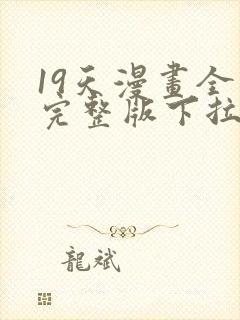 19天漫畫全
完整版下拉
龍斌